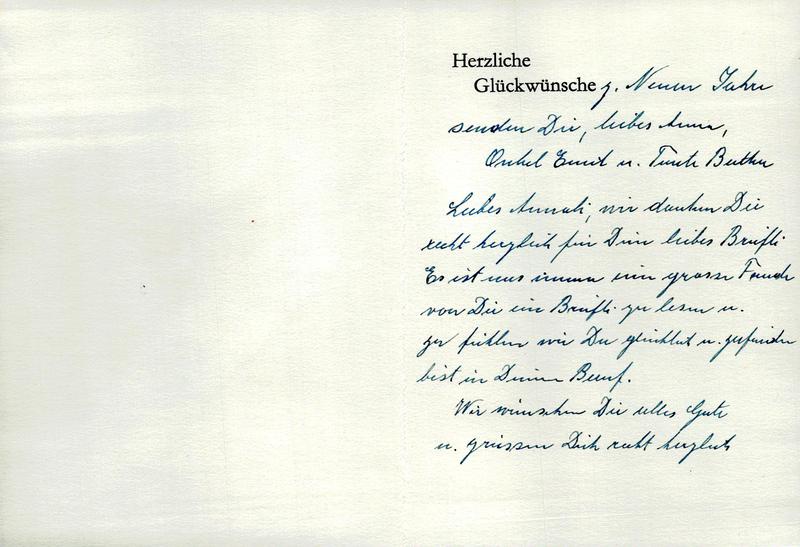 Herzliche
Glückwünsche z. Neuen Jahre
senden Dir, liebes Anna,
Onkel Ernst u. Tante Bertha
Liebes Annali, wir danken Dir
recht herzlich für Dein liebes Briefli
Es ist uns immer eine grosse Freude
von Dir ein Briefli zu lesen u.
zu fühlen wie Du glücklich u. zufrieden
bist in Deinem Beruf.
Wir wünschen Dir alles Gute
u. grüssen Dich recht herzlich